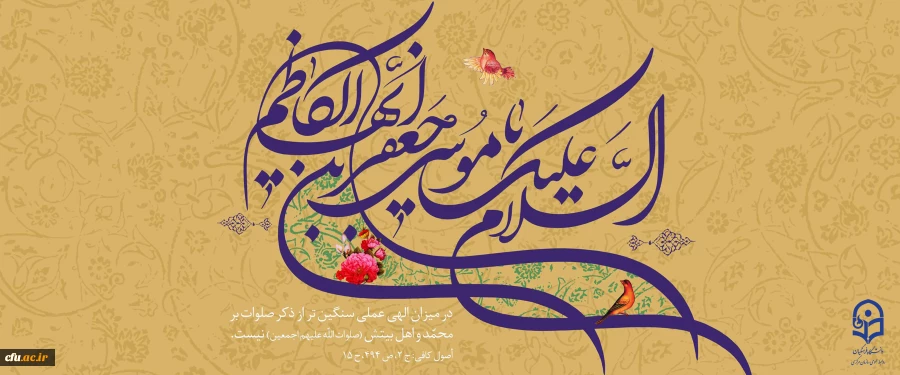 السلام علیک یا موسی بن جعفر ایها الکاظم
در میزان الهی عملی سنگین تر از ذکر صلوات بر
محمد و اهل بیتش (صلوات الله علیهم اجمعین) نیست.
اصول کافی: ج ۲، ص ۴۹۴، ح ۱۵
دانشگاه فرهنگیان
cfu.ac.ir